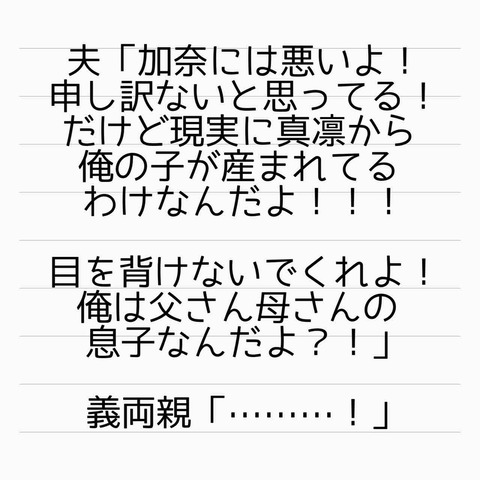 夫「加奈には悪いよ！
申し訳ないと思ってる！
だけど現実に真凛から
俺の子が産まれてる
わけなんだよ！！！
目を背けないでくれよ！
俺は父さん母さんの
息子なんだよ？！」
義両親「………！」